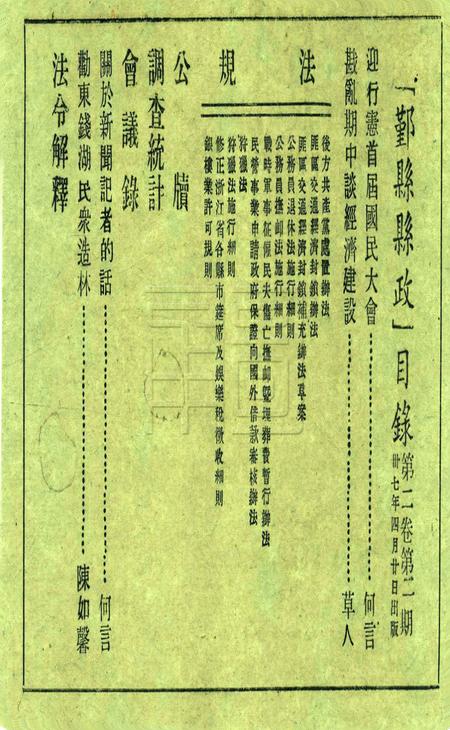 「鄞縣縣政」目錄 第二卷第二期
卅七年四月廿日出版
迎行憲首屆國民大會………何言
戡亂期中談經濟建設………草人
法規
後方共產黨處置辦法
匪區交通經濟封鎖辦法
匪區交通經濟封鎖補充辦法草案
公務員退休法施行細則
公務員撫卹法施行細則
戰時軍事征僱民夫傷亡撫卹暨埋葬費暫行辦法
民營事業申請政府保證向國外借款審核辦法
狩獵法
狩獵法施行細則
修正浙江省各縣市筵席及娛樂稅徵收細則
銀樓業許可規則
公牘
調查統計
會議錄
關於新聞記者的話………何言
勸東錢湖民衆造林………陳如馨
法令解釋